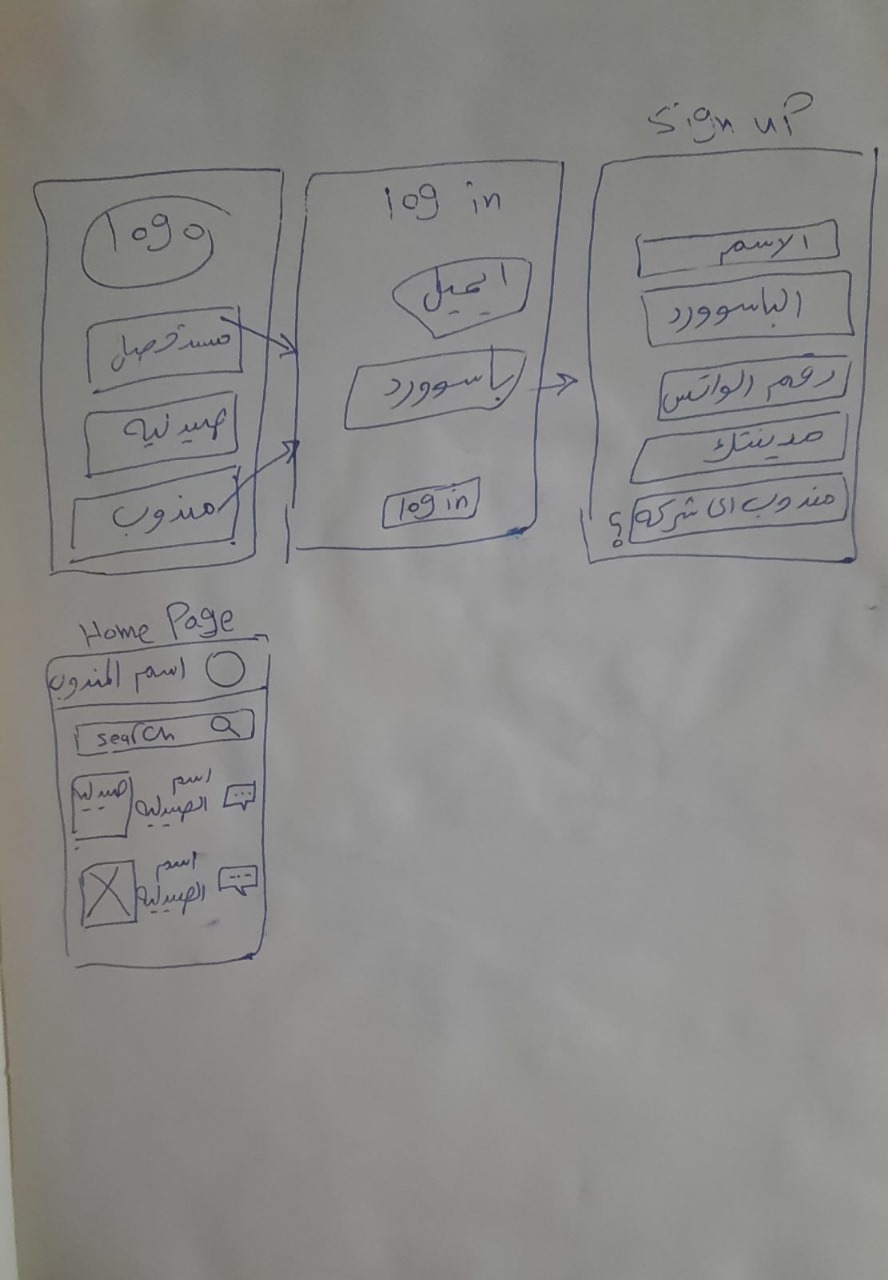 logo
صيدليه
مندوب
log in
ايميل
باسوورد
log in
Sign up
الاسم
الباسوورد
رقم الواتس
مدينتك
مندوب اى شركه ؟
Home Page
اسم المندوب
search
صيدلية
اسم
الصيدليه
اسم
الصيدليه